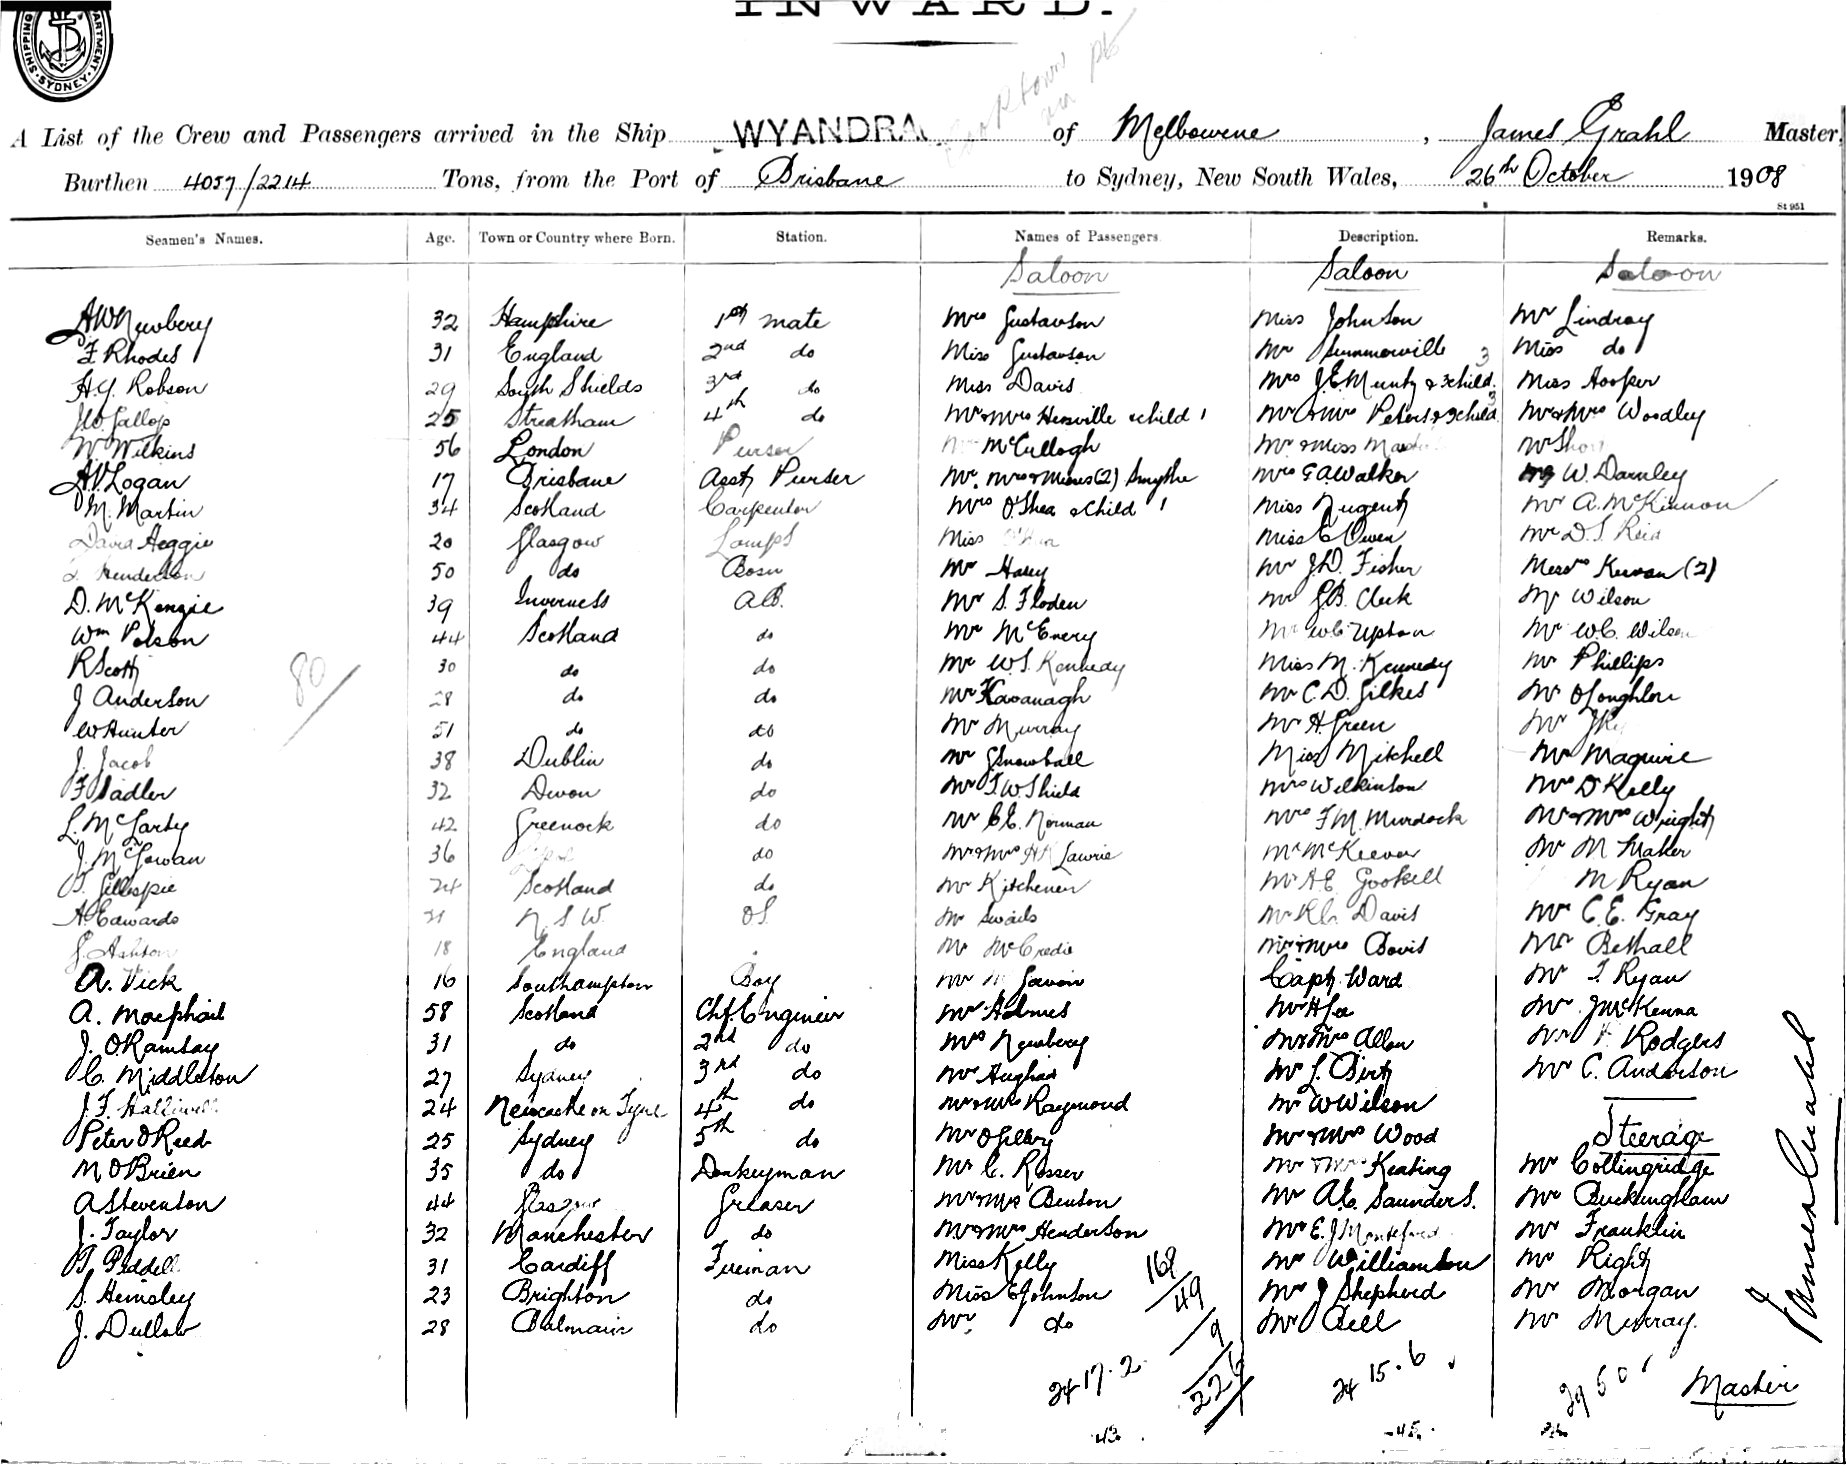 INWARD.
SHIPPING DEPARTMENT SYDNEY
Cooktown
A List of the Crew and Passengers arrived in the Ship WYANDRA of Melbourne, James Grahl Master,
Burthen 4057/2214 Tons, from the Port of Brisbane to Sydney, New South Wales, 26th October 1908
St 951
Seamen's Names. Age. Town or Country where Born. Station. Names of Passengers Description. Remarks.
Saloon Saloon Saloon
AW Newbery 32 Hampshire 1st mate Mrs Gustavson Miss Johnson Mr Lindray
F Rhodes 31 England 2nd do Miss Gustavson Mr Summerville Miss do
H.Y. Robson 29 South Shields 3rd do Miss Davis Mrs J.E. Munty & 3 child. 3 Miss Hooper
Jallop 25 Streatham 4th do Mr & Mrs Hensville & child 1 Mr & Mrs Peters & 3 child 3 Mr & Mrs Woodley
W Wilkins 56 London Purser McCullogh Mr & Miss Mr
AV Logan 17 Brisbane Asst Purser Mr. Mrs & Misses (2) Smythe Mrs G A Walker W. Darnley
M. Martin 34 Scotland Carpenter Mrs O'Shea & Child 1 Miss Nugent Mr A. McKinnon
David Heggie 20 Glasgow Lamps Miss Miss E Owen Mr D.S. Reid
Henderson 50 do Bosn Mr Haley Mr J.D. Fisher Messrs Keevan (2)
D. McKenzie 39 Inverness A.B. Mr S. Floden Mr G.B. Clark Mr Wilson
Wm Polson 44 Scotland do Mr McEnery Mr W.C. Upton Mr W.C. Wilson
R Scott 30 do do Mr W.S. Kennedy Miss M. Kennedy Mr Phillips
80/
J Anderson 28 do do Mr Kavanagh Mr C.D. Gilkes Mr O'Loughlin
W Hunter 51 do do Mr Murray Mr H. Green Mr
J. Jacob 38 Dublin do Mr G Snowball Miss Mitchell Mr Maguire
F Sadler 32 Devon do Mr F W Shield Mrs Wilkinson Mr D Kelly
L. McLarty 42 Greenock do Mr C.E. Norman Mrs F.M. Murdock Mr & Mrs Wright
J. McGowan 36 do Mr & Mrs H K Lawrie Mr McKeever Mr M Maher
T. Gillespie 24 Scotland do Mr Kitchener Mr A.E. Gookell M Ryan
A Edwards 21 N.S.W. O.S. Mr Swails Mr Davis Mr C.E. Gray
J. Ashton 18 England Mr McCredie Mr & Mrs Davis Mr Bethall
A. Vick 16 Southampton Boy Mr Gavin Capt. Ward Mr T. Ryan
A. Macphail 58 Scotland Chf. Engineer Mr Holmes Mr H Lee Mr J McKenna
J. O Ramsay 31 do 2nd do Mrs Newbery Mr & Mrs Allen Mr Rodgers
C. Middleton 27 Sydney 3rd do Mr Hughes Mr L. Birt Mr C. Anderson
J. F. Halliwell 24 Newcastle on Tyne 4th do Mr & Mrs Raymond Mr W Wilson
Peter O Reed 25 Sydney 5th do Mr Ogilvy Mr & Mrs Wood Steerage
M O'Brien 35 do Donkeyman Mr C. Rosser Mr & Mrs Keating Mr Collingridge
A Stevenson 44 Glasgow Greaser Mr & Mrs Benson Mr A.E. Saunders. Mr Buckingham
J. Taylor 32 Manchester do Mr & Mrs Henderson Mr E. J Montefiore Mr Franklin
T. Riddell 31 Cardiff Fireman Miss Kelly Mr Williamson Mr Right
S. Hemsley 23 Brighton do Miss E Johnson Mr J Shepherd Mr Morgan
J. Dullow 28 Balmain do Mr. do Mr Bell Mr Murray.
168
49
9
226
24 17.2 24 15.6 29 5 0 1
James Grahl
Master
43. -45.